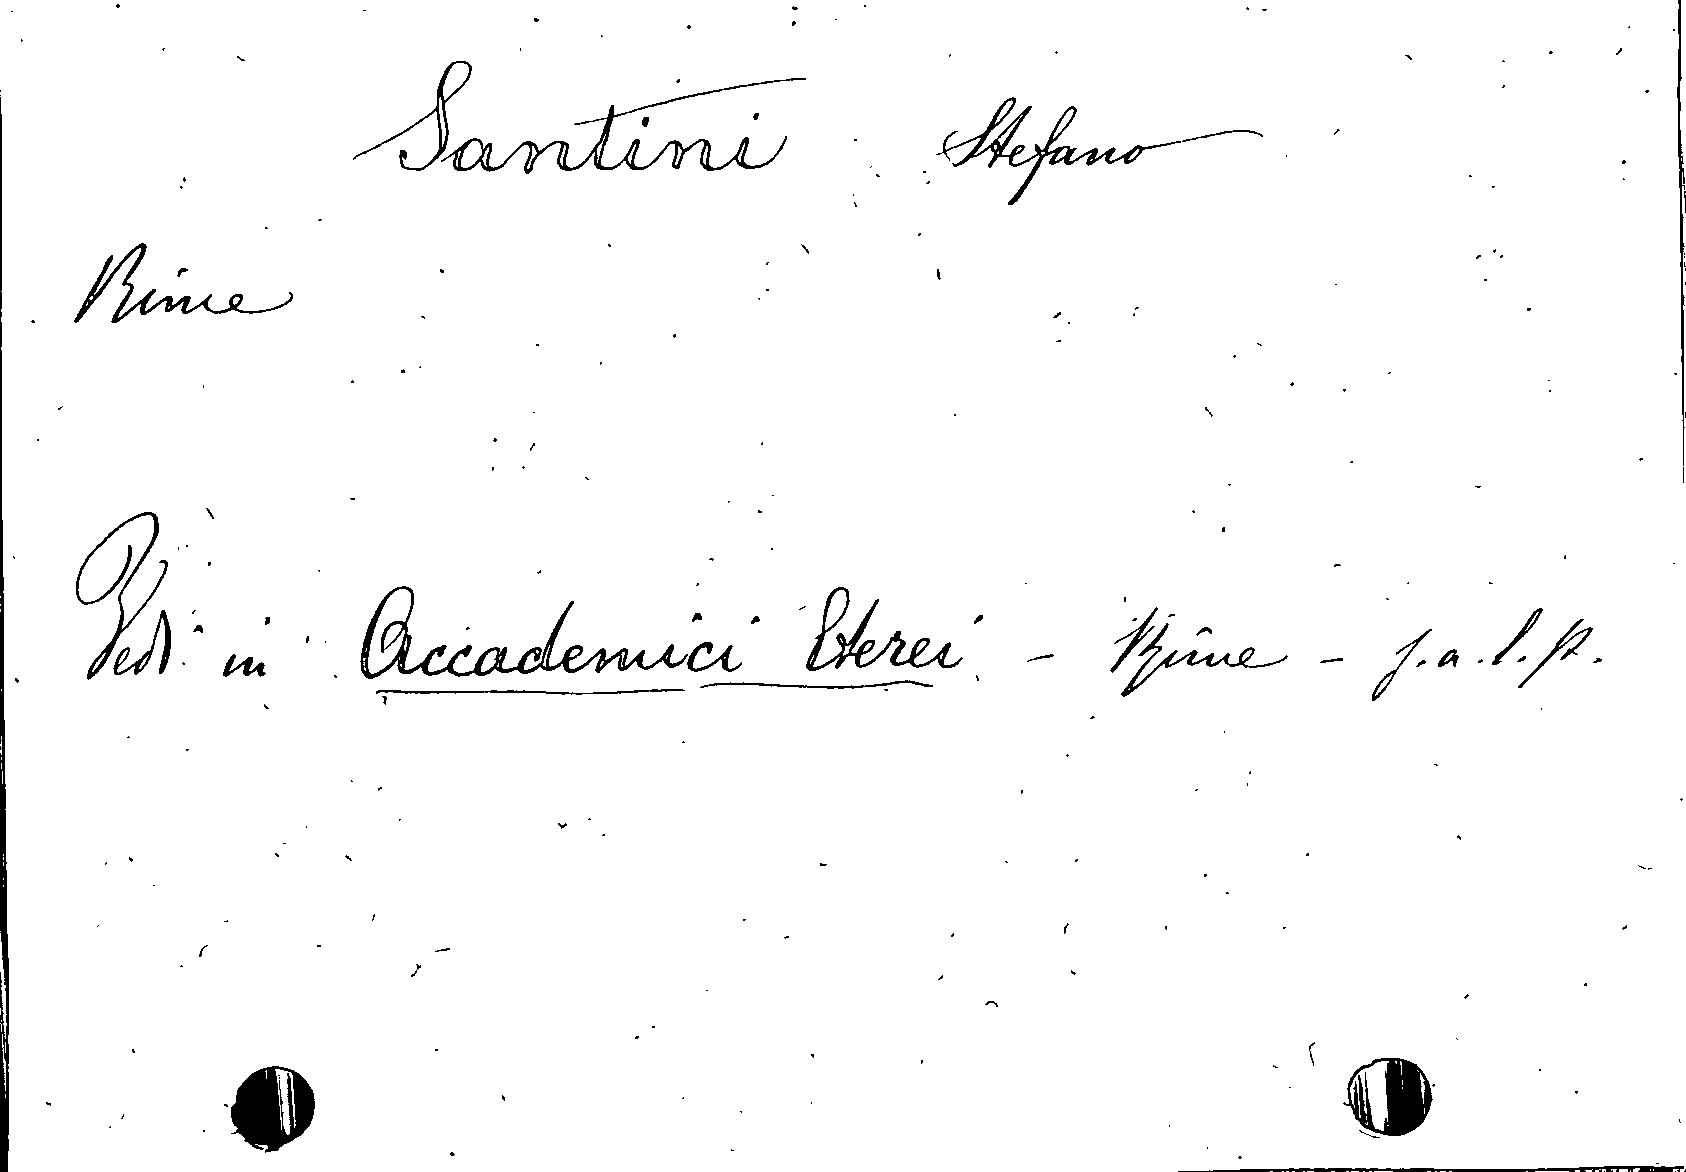 Santini Stefano
Rime
Vedi in Accademici Eterei - Rime - f.a.l.p.